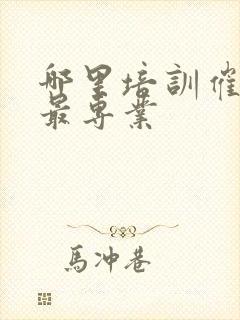 哪里培訓催
最專業
馬冲巷